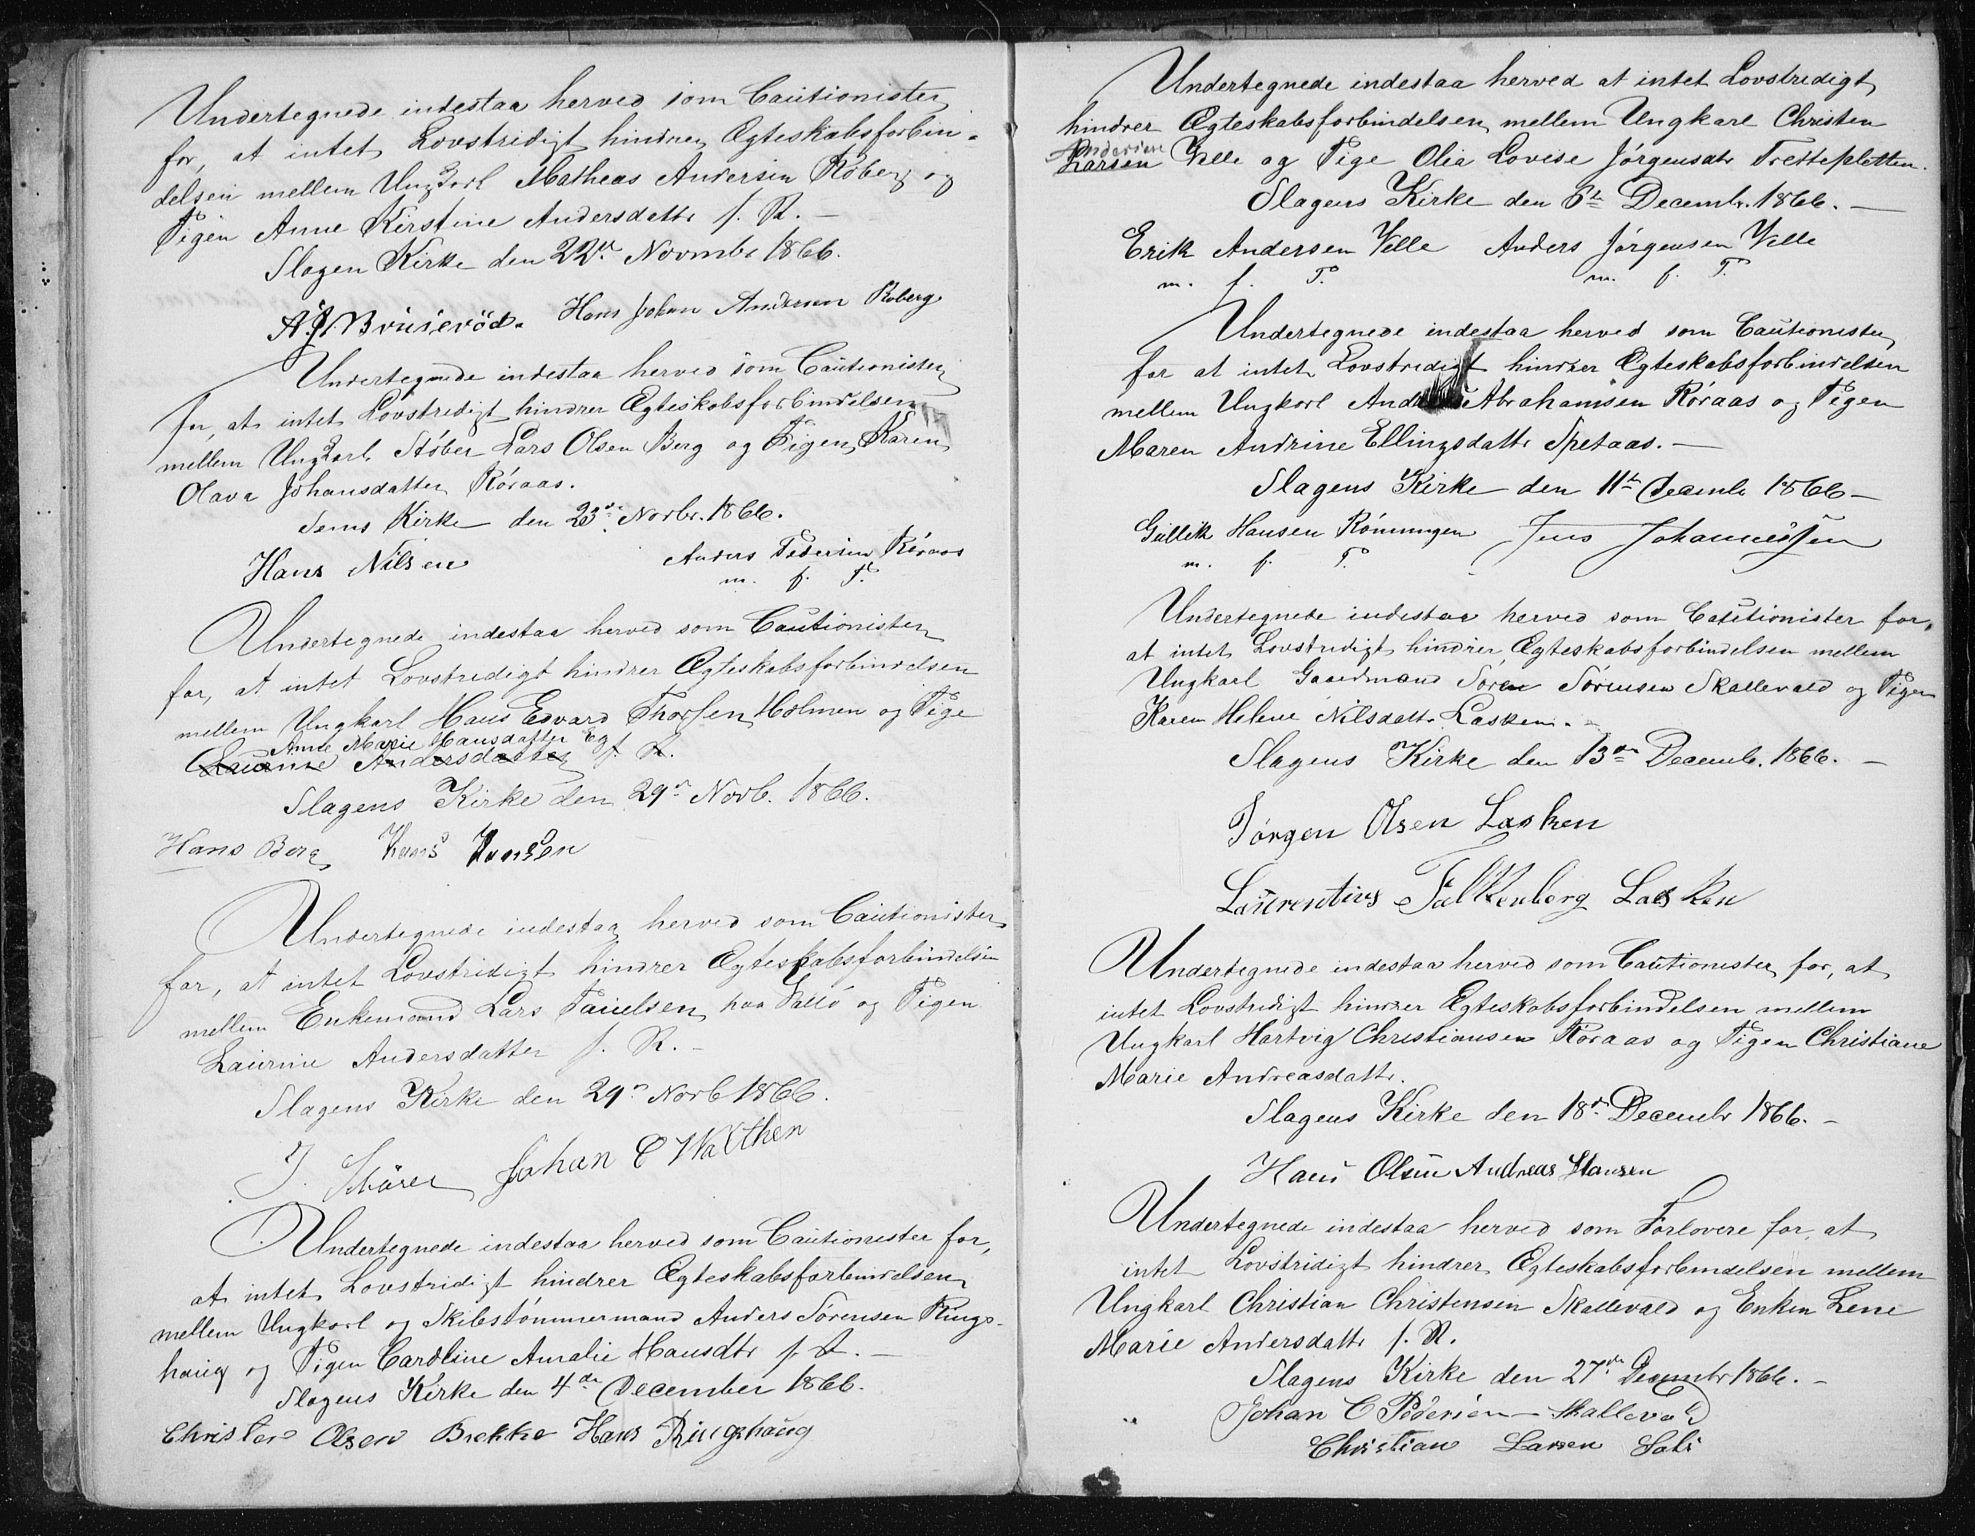 Undertegnede indestaa herved som Cautionister
for, at intet Lovstridigt hindrer Ægteskabsforbin-
delsen mellem Ungkarl Matheas Andersen Roberg og
Pigen Anne Kirstine Andersdattr f. R. —
Slagen Kirke den 22de Novmbr 1866.
Hans Johan Andersen Roberg
Undertegnede indestaa herved som Cautionister
for, at intet Lovstridigt hindrer Ægteskabsforbindelsen
mellem Ungkarl Støber Lars Olsen Berg og Pigen Karen
Olava Johansdatter Røraas.
Sems Kirke den 23de Novbr. 1866.
Hans Nilsen Anders Pedersen Røraas
m. f. P.
Undertegnede indestaa herved som Cautionister
for, at intet Lovstridigt hindrer Ægteskabsforbindelsen
mellem Ungkarl Hans Edvard Thorsen Holmen og Pige
Anne Marie Hansdatter Eg
Laurine Andersdatter f. R.
Slagens Kirke den 29de Novb. 1866.
Hans Berg Hans Hansen
Undertegnede indestaa herved som Cautionister
for, at intet Lovstridigt hindrer Ægteskabsforbindelsen
mellem Enkemand Lars Paulsen paa Vallø og Pigen
Laurine Andersdatter f. R. —
Slagens Kirke den 29de Novb 1866.
Johan C Walthen
Undertegnede indestaa herved som Cautionister for,
at intet Lovstridigt hindrer Ægteskabsforbindelsen
mellem Ungkarl og Skibstømmermand Anders Sørensen Rings-
haug og Pigen Caroline Amalie Hansdtr f. R. —
Slagens Kirke den 4de December 1866.
Christen Olsen Brekke Hans Ringshaug
Undertegnede indestaa herved at intet Lovstridigt
hindrer Ægteskabsforbindelsen mellem Ungkarl Christen
Andersen
Larsen Velle og Pige Olia Lovise Jørgensdtr Trettepletten.
Slagens Kirke den 6te Decembr. 1866. —
Erik Andersen Velle Anders Jørgensen Velle
m. f. P. m. f. P.
Undertegnede indestaa herved som Cautionister
for at intet Lovstridigt hindrer Ægteskabsforbindelsen
mellem Ungkarl Abrahamsen Røraas og Pigen
Maren Andrine Ellingsdattr Spetaas. —
Slagens Kirke den 11te Decembr 1866 —
Gullik Hansen Rønningen Jens Johannessen
m. f. P.
Undertegnede indestaa herved som Cautionister for,
at intet Lovstridigt hindrer Ægteskabsforbindelsen mellem
Ungkarl Gaardmand Søren Sørensen Skallevald og Pigen
Karen Helene Nilsdattr Lasken. —
Slagens Kirke den 13de Decembr. 1866. —
Jørgen Olsen Lasken
Laurentius Falkenberg Lasken
Undertegnede indestaa herved som Cautionister for, at
intet Lovstridigt hindrer Ægteskabsforbindelsen mellem
Ungkarl Hartvig Christiansen Røraas og Pigen Christiane
Marie Andreasdattr.
Slagens Kirke den 18de Decembr 1866. —
Hans Olsen Andreas Hansen
Undertegnede indestaa herved som Forlovere for, at
intet Lovstridigt hindrer Ægteskabsforbindelsen mellem
Ungkarl Christian Christensen Skallevald og Enken Lene
Marie Andersdattr f. R.
Slagens Kirke den 27de Decembr 1866. —
Johan C Pedersen Skallevold
Christian Larsen